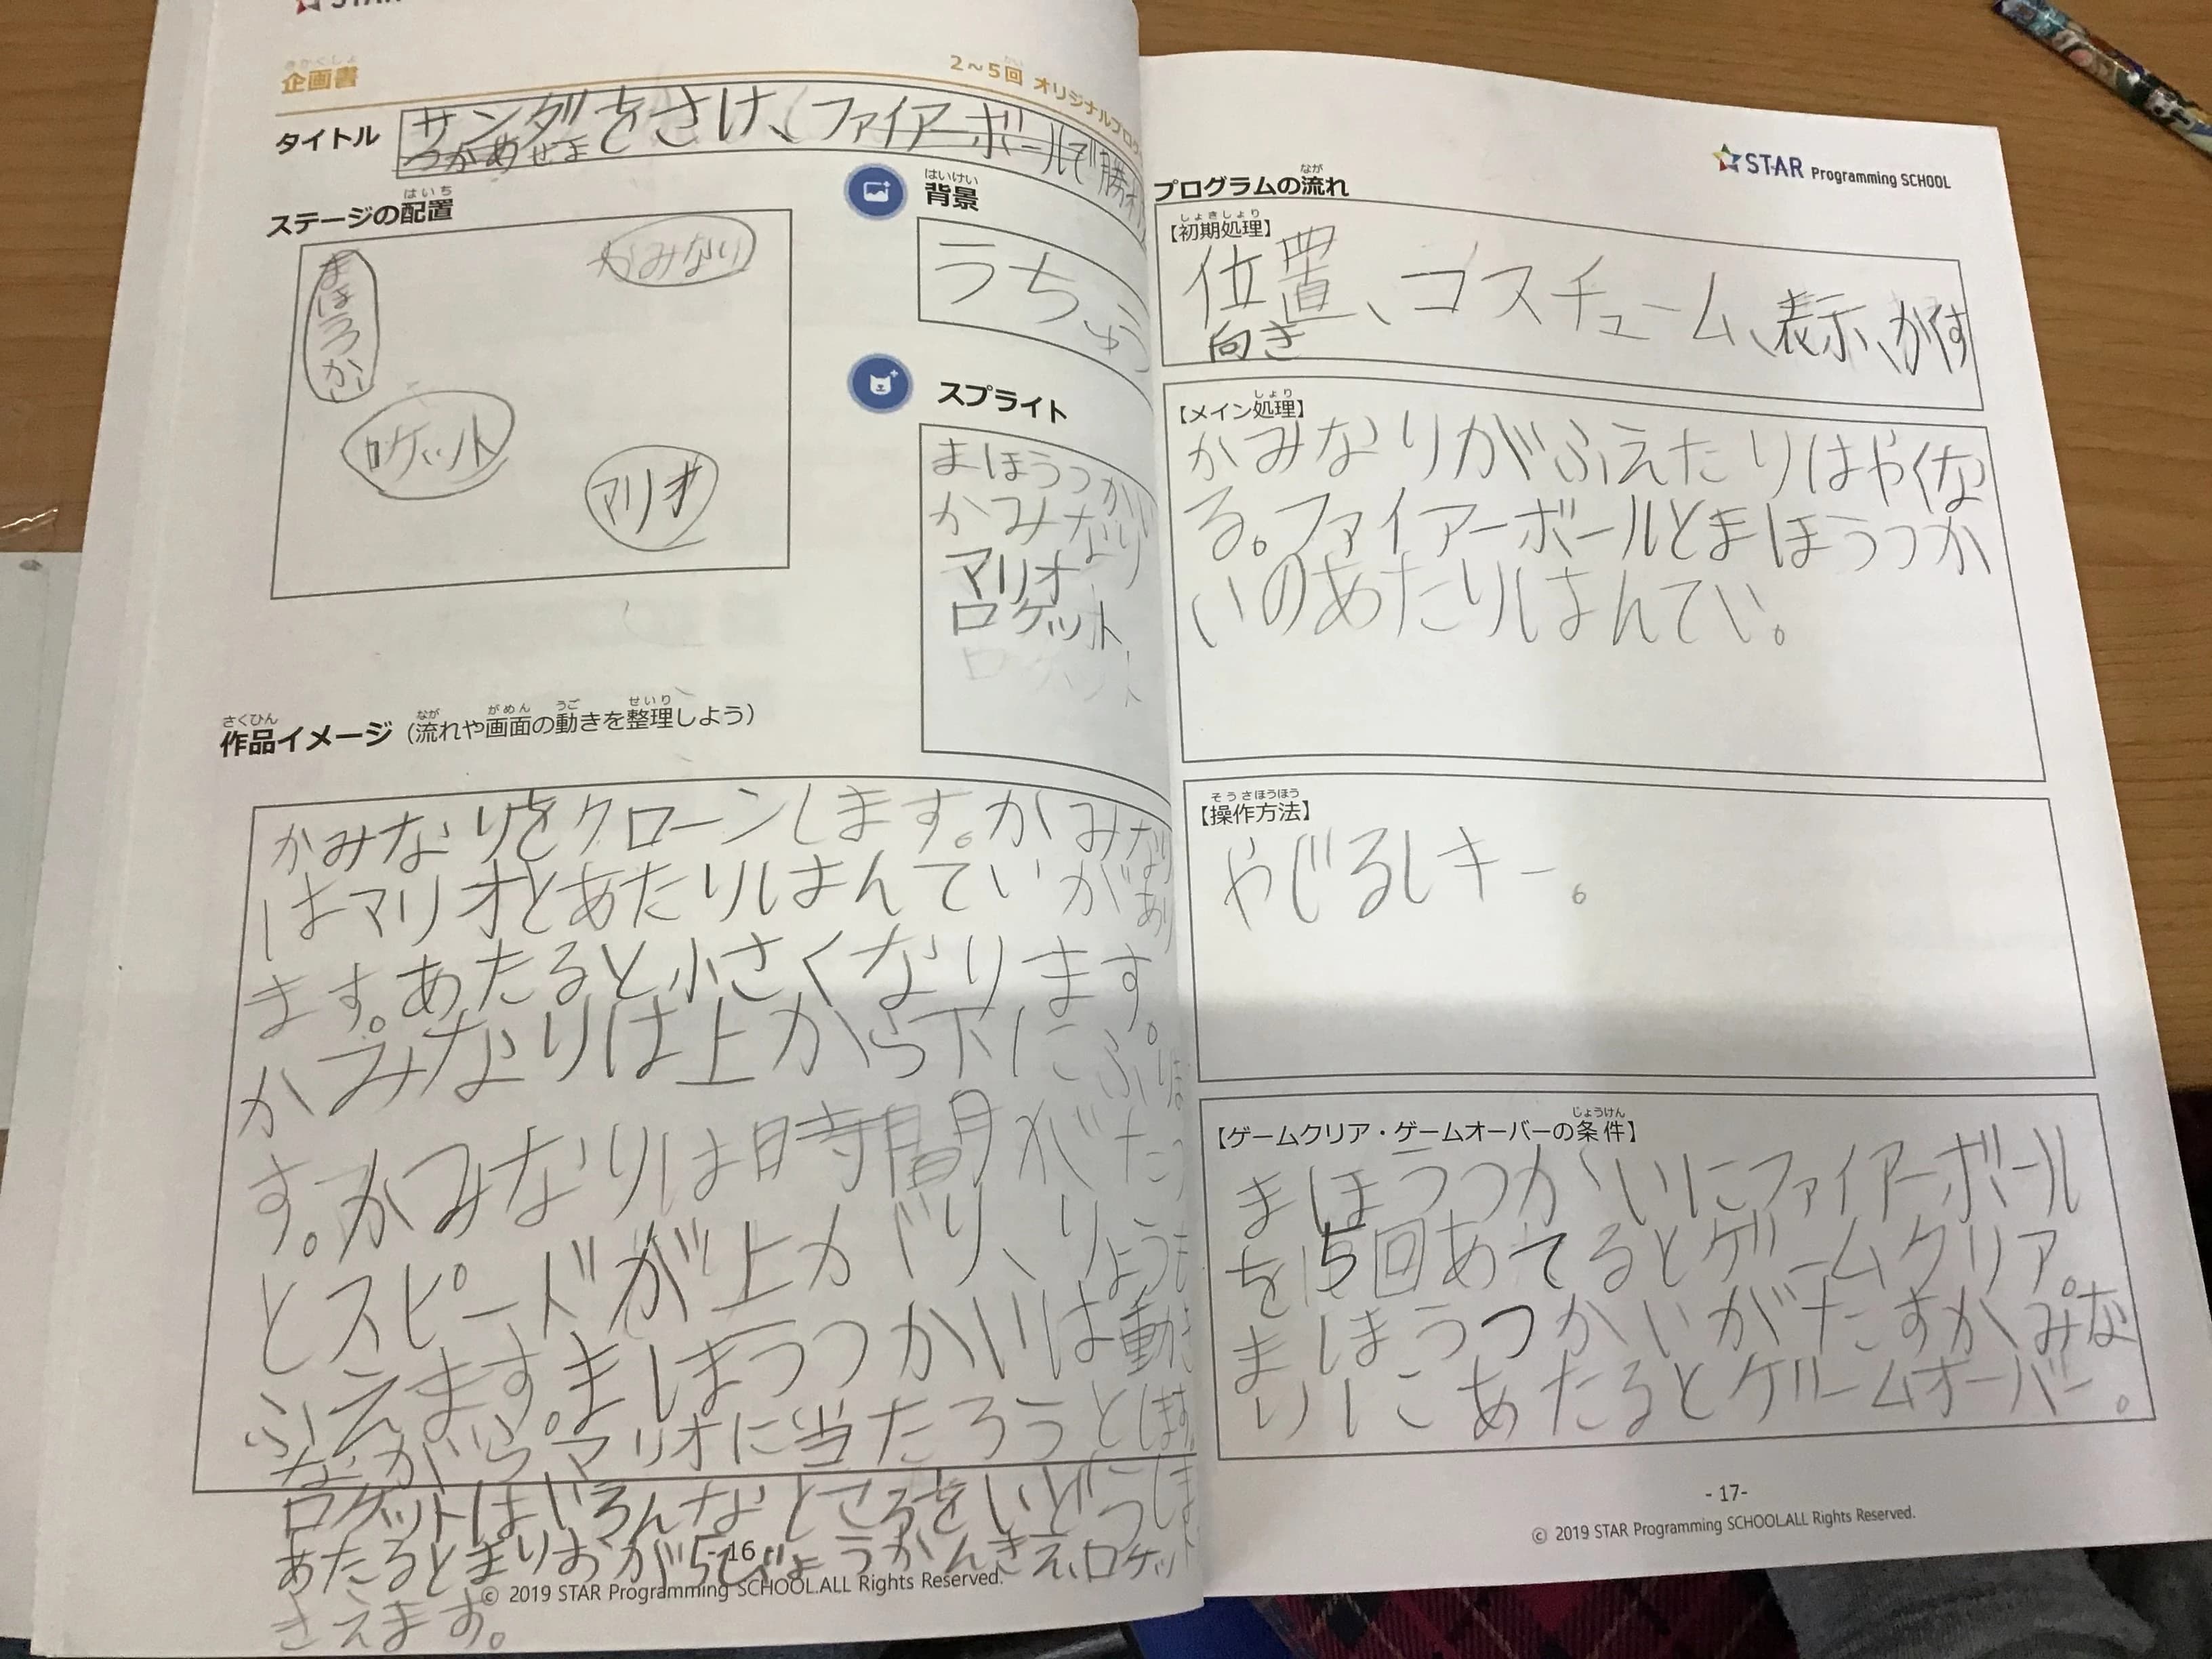 企画書
2～5回 オリジナルプログ
タイトル
サンダをさけ、ファイアーボールで勝オ
つかめせよ
ステージの配置
はいち
まほうつかい
かみなり
ロケット
マリオ
はいけい
背景
うちゅう
スプライト
まほうつかい
かみなり
マリオ
ロケット
さくひん なが がめん うご せいり
作品イメージ（流れや画面の動きを整理しよう）
かみなりをクローンします。かみなり
はマリオとあたりはんていがあり
ます。あたると小さくなります。
かみなりは上から下にふりま
す。かみなりは時間がたつ
とスピードが上がり、りょうも
ふえます。まほうつかいは動き
ながらマリオに当たろうとします。
ロケットはいろんなところをいどうしま
あたるとまりおが5びょうかんきえ、ロケッ
きえます。
- 16
© 2019 STAR Programming SCHOOL.ALL Rights Reserved.
STAR Programming SCHOOL
なが
プログラムの流れ
しょきしょり
【初期処理】
位置、コスチューム、表示、かくす
向き
しょり
【メイン処理】
かみなりがふえたりはやくな
る。ファイアーボールとまほうつか
いのあたりはんてい。
そうさほうほう
【操作方法】
やじるしキー。
じょうけん
【ゲームクリア・ゲームオーバーの条件】
まほうつかいにファイアーボール
を15回あてるとゲームクリア。
まほうつかいがだすかみな
りにあたるとゲームオーバー。
- 17-
© 2019 STAR Programming SCHOOL.ALL Rights Reserved.